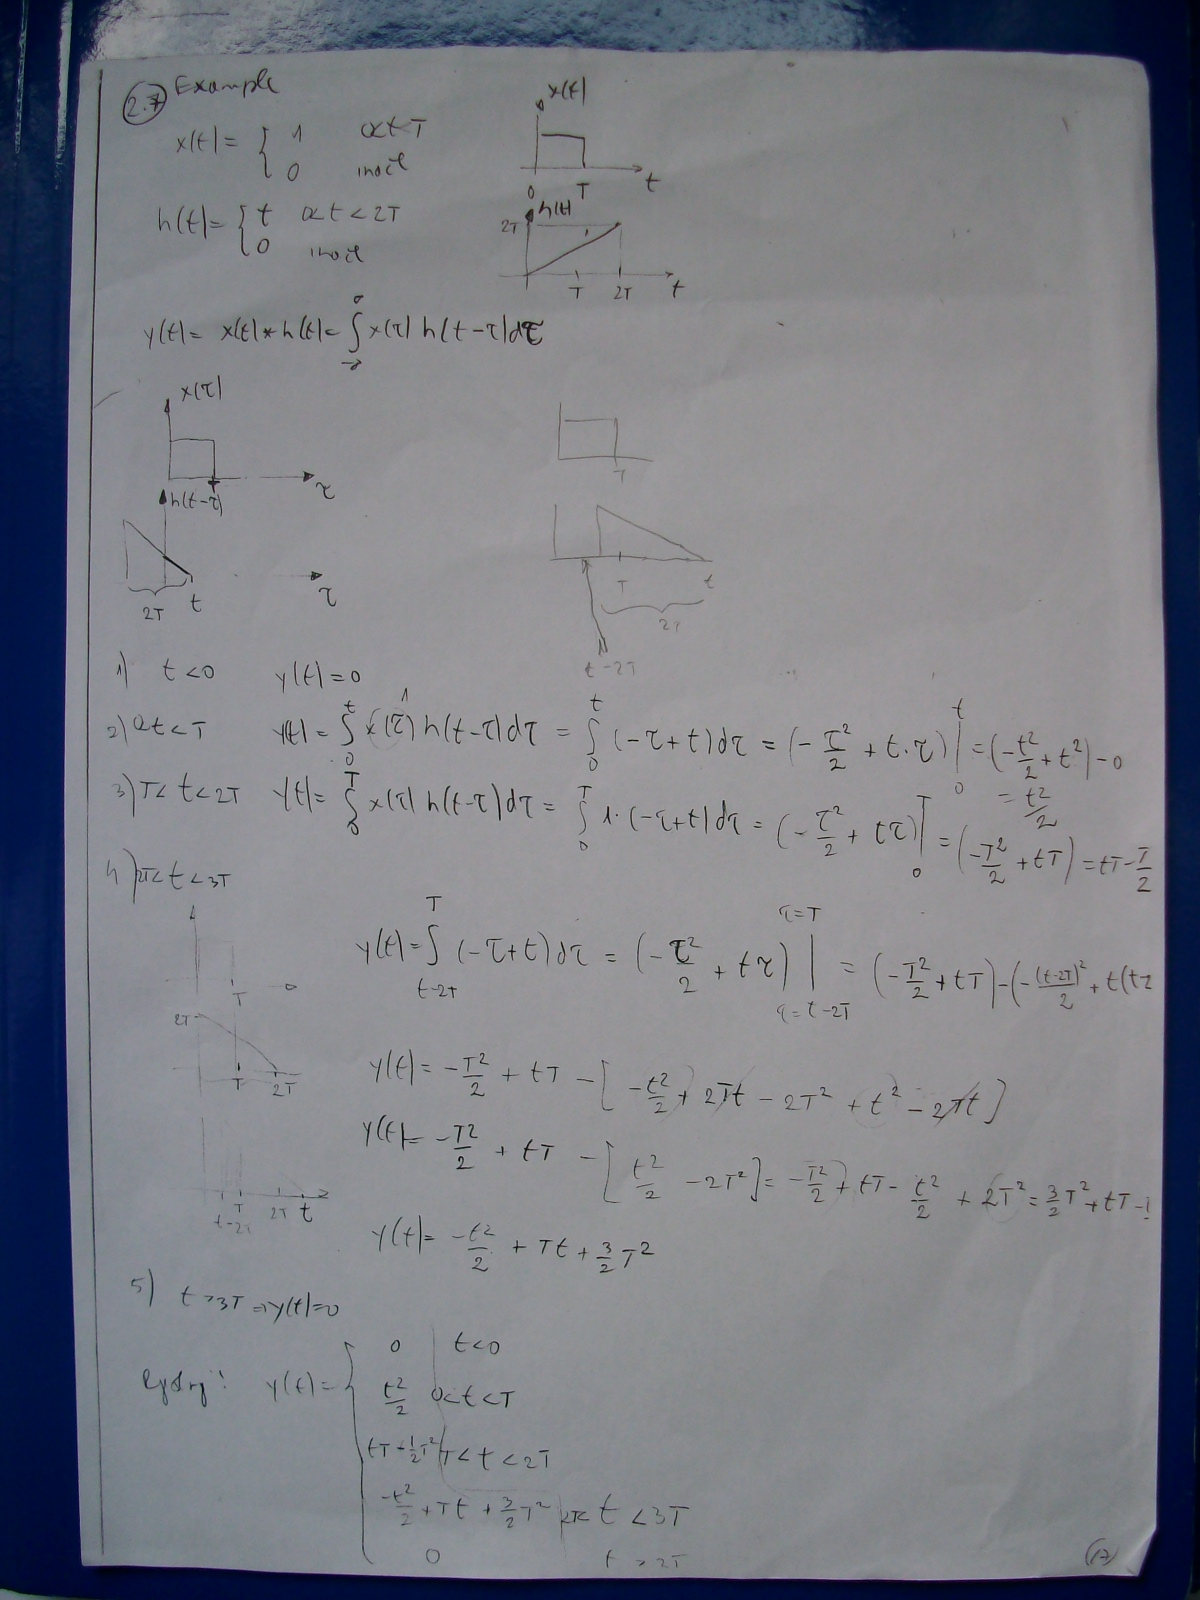 2.7 Example
x(t)= { 1 0<t<T
0 inact
x(t)
0 T t
h(t)= { t 0<t<2T
0 inact
h(t)
2T
T 2T t
y(t)= x(t)*h(t)= ∫ x(τ) h(t-τ)dτ
x(τ)
T τ
h(t-τ)
2T t τ
T
T t
2T
t-2T
1) t<0 y(t)=0
2) 0<t<T y(t)= ∫₀ᵗ x(τ) h(t-τ)dτ = ∫₀ᵗ (-τ+t)dτ = (-τ²/2 + t·τ)|₀ᵗ = (-t²/2 + t²)-0
= t²/2
3) T<t<2T y(t)= ∫₀ᵀ x(τ) h(t-τ)dτ = ∫₀ᵀ 1·(-τ+t)dτ = (-τ²/2 + tτ)|₀ᵀ = (-T²/2 + tT) = tT-T/2
4) 2T<t<3T
y(t)= ∫ (-τ+t)dτ = (-τ²/2 + tτ) | = (-T²/2 + tT)-(-(t-2T)²/2 + t(t-2
T t-2T τ=T τ=t-2T
T
2T
T 2T
y(t)= -T²/2 + tT - [-t²/2 + 2Tt - 2T² + t² - 2Tt]
y(t)= -T²/2 + tT - [t²/2 - 2T²] = -T²/2 + tT - t²/2 + 2T² = 3/2 T² + tT -
t-2T T 2T t
y(t)= -t²/2 + Tt + 3/2 T²
5) t>3T ⇒ y(t)=0
y(t)= { 0 t<0
t²/2 0<t<T
tT-1/2T² T<t<2T
-t²/2 + Tt + 3/2 T² 2T<t<3T
0 t>2T